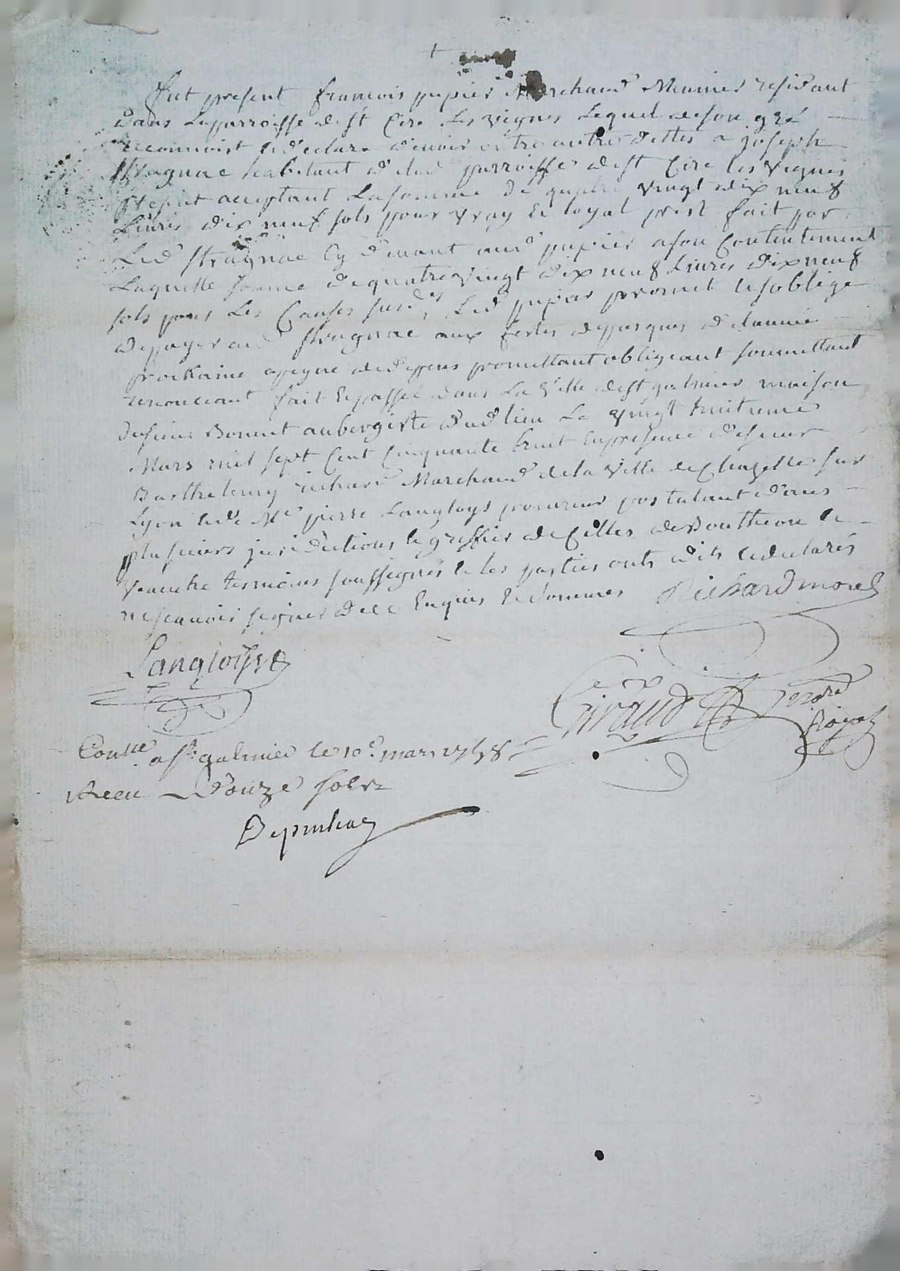 fut present francois pupier Marchand Meunier residant
dans la parroisse de st Cire les vignes lequel de son gré
reconnoist et declare devoir entre autre dettes a joseph
habitant de lad parroisse de st Cire les vignes
present acceptant la somme de quatre vingt dix neuf
livres dix neuf sols pour vray et loyal prest fait par
led cy devant aud pupier a son contentement
laquelle somme de quatre vingt dix neuf livres dix neuf
sols pour les causes susd led pupier promet et soblige
de payer aud aux festes de pasques de lannée
prochaine a peyne de depens promettant obligeant soumettant
renonceant fait et passé dans la ville de st galmier maison
de sieur Bonnet aubergiste dud lieu le vingt huitieme
Mars mil sept cent cinquante huit en presence de sieur
Barthelemy richard Marchand de la ville de Chazelle sur
Lyon et de Me pierre Langloys procureur postulant dans
plusieurs juridictions et greffier de celles de Boutheon le
vendre tesmoins soussignés et les parties onts dits et declarés
ne scavoir signer de ce enquis et sommés Richard morel
Langloys
Giraud nore Royal
Conllé a st galmier le 10e mars 1758
Receu douze sols